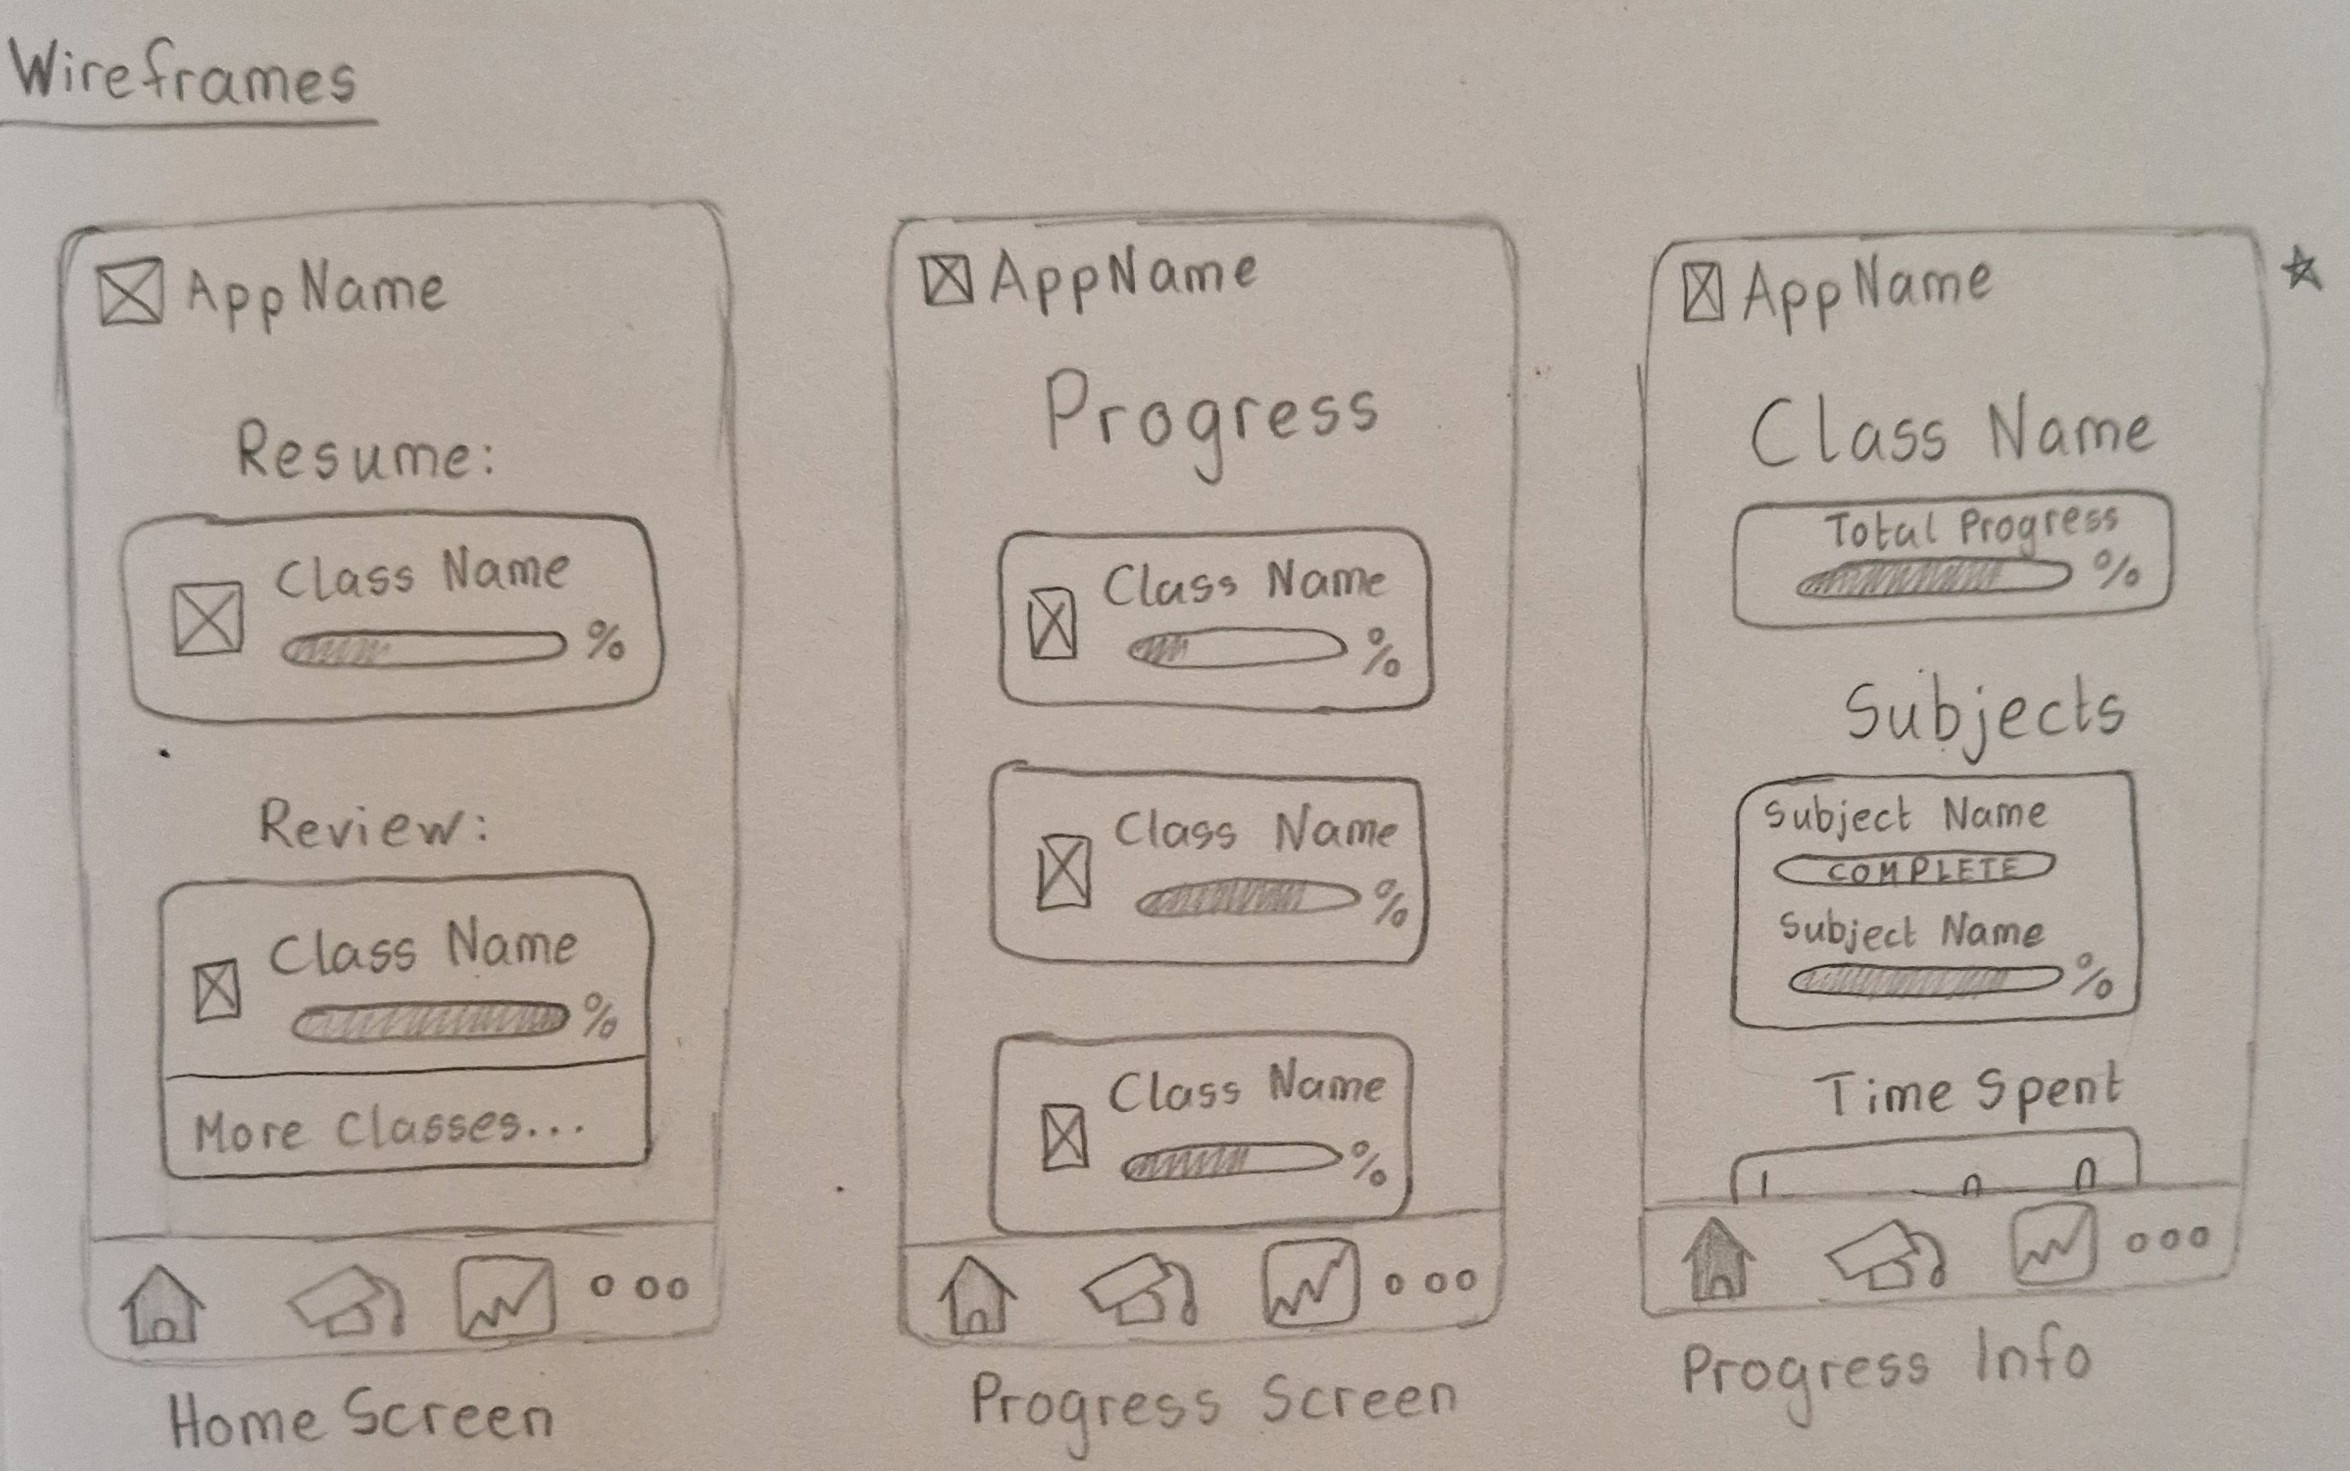 Wireframes
AppName
Resume:
Class Name
%
Review:
Class Name
%
More Classes...
Home Screen
AppName
Progress
Class Name
%
Class Name
%
Class Name
%
Progress Screen
AppName
Class Name
Total Progress
%
Subjects
Subject Name
COMPLETE
Subject Name
%
Time Spent
Progress Info